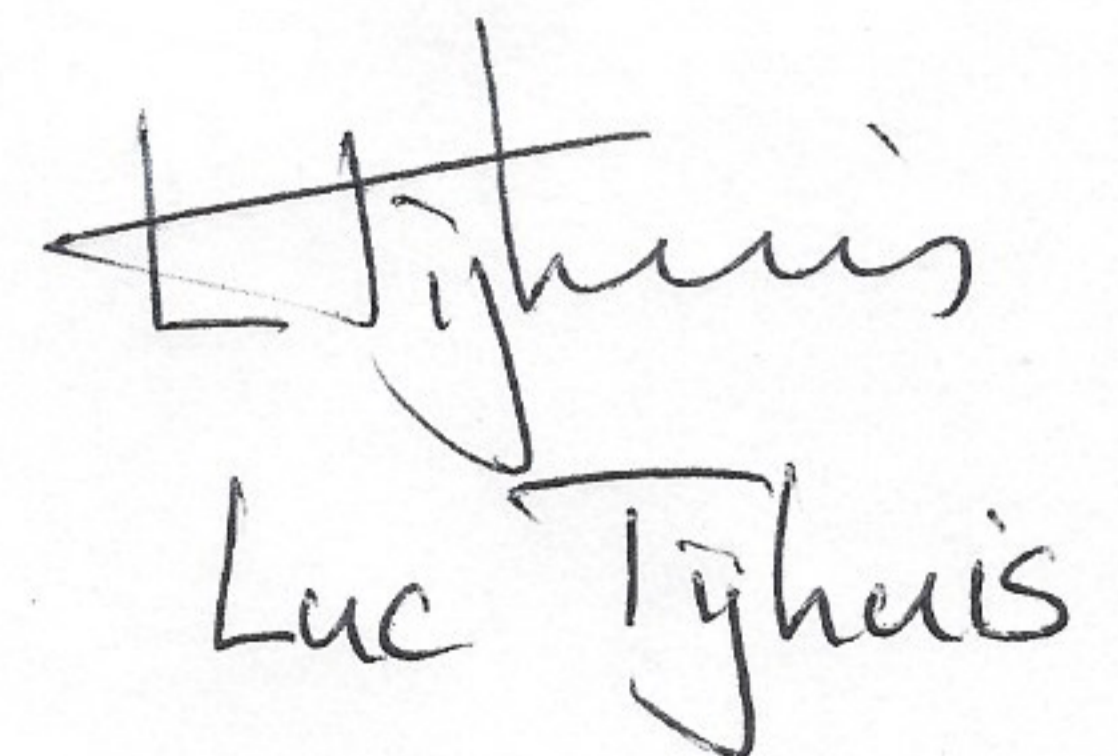 L Tijhuis
Luc Tijhuis